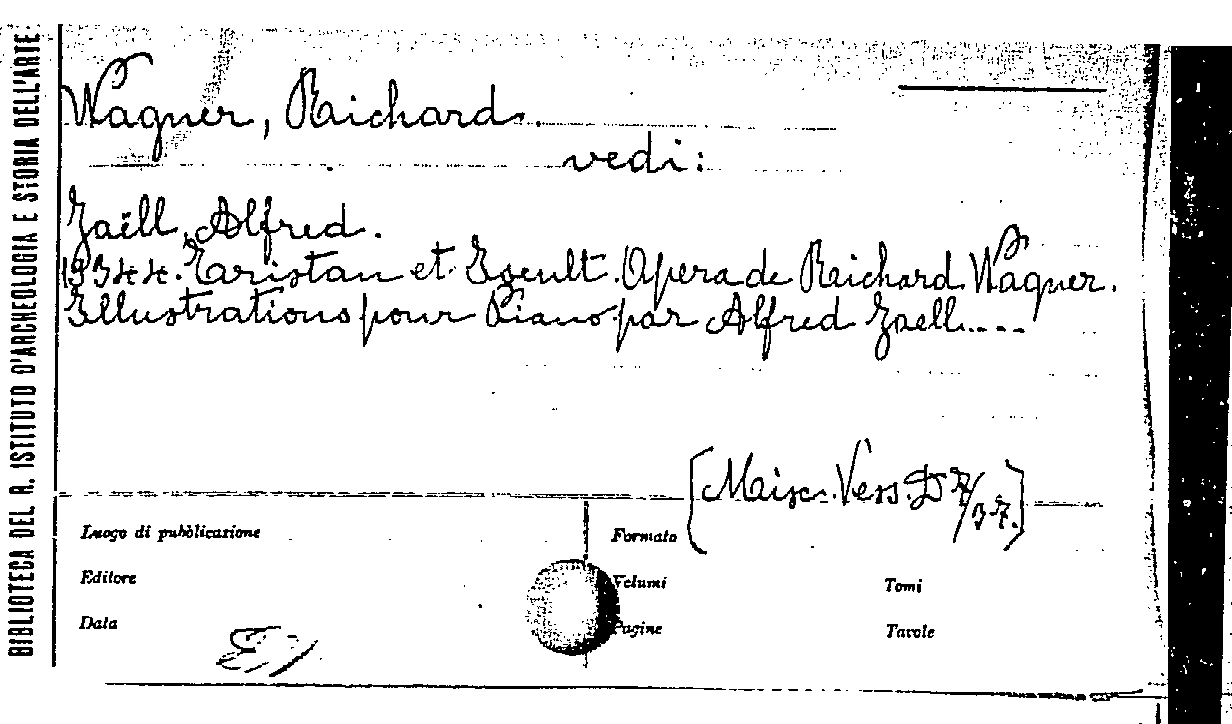 BIBLIOTECA DEL R. ISTITUTO D'ARCHEOLOGIA E STORIA DELL'ARTE.
Wagner, Richard.
vedi:
Jaëll, Alfred.
Tristan et Iseult. Opera de Richard Wagner.
Illustrations pour Piano par Alfred Jaell....
[Misc. Vess. D 7/37.]
Luogo di pubblicazione
Formato
Editore
Volumi
Tomi
Data
Pagine
Tavole